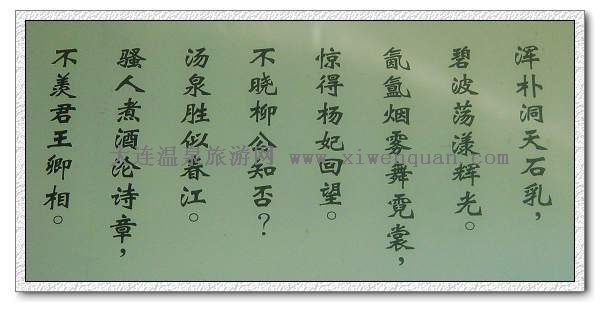 浑朴洞天石乳，
碧波荡漾辉光。
氤氲烟雾舞霓裳，
惊得杨妃回望。
不晓柳公知否？
汤泉胜似春江。
骚人煮酒论诗章，
不羡君王卿相。
大连温泉旅游网 www.xiwenquan.com